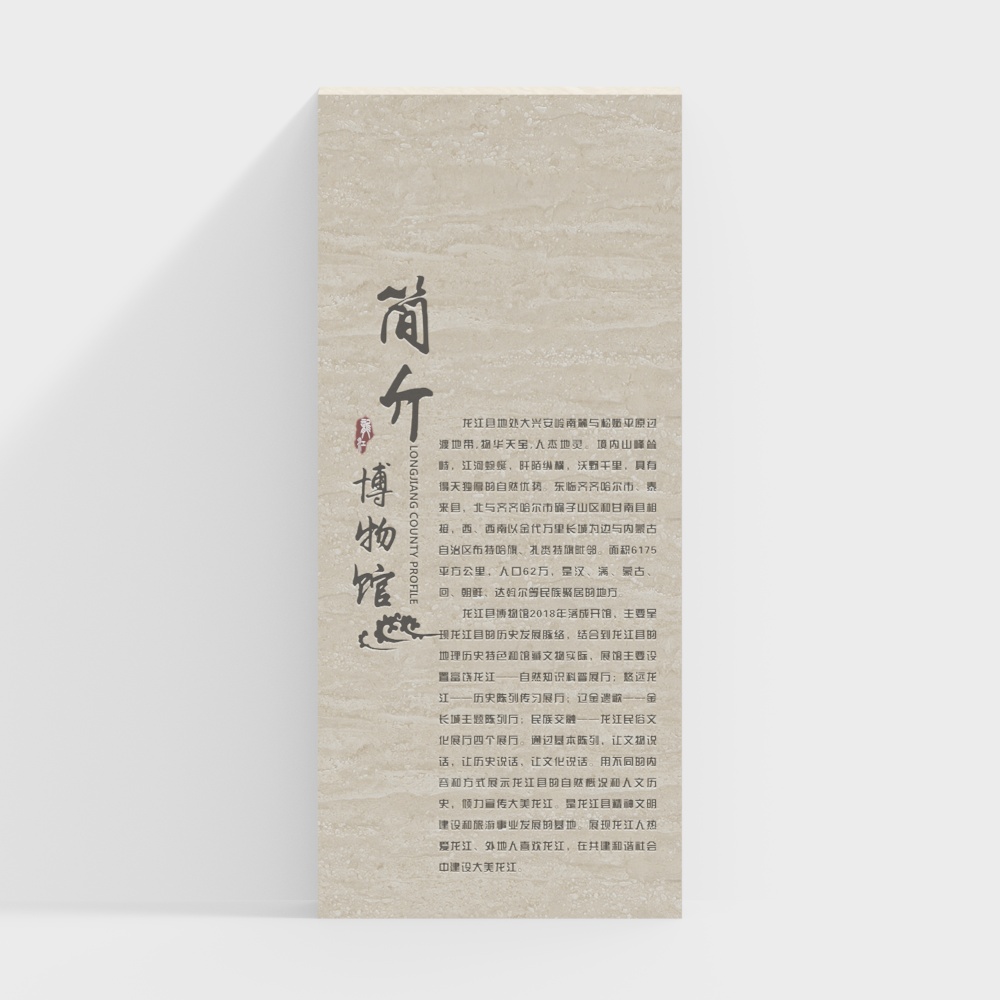 简介
博物馆
LONGJIANG COUNTY PROFILE
龙江县地处大兴安岭南麓与松嫩平原过
渡地带,物华天宝,人杰地灵。境内山峰耸
峙，江河蜿蜒，阡陌纵横，沃野千里，具有
得天独厚的自然优势。东临齐齐哈尔市、泰
来县，北与齐齐哈尔市碾子山区和甘南县相
接，西、西南以金代万里长城为边与内蒙古
自治区布特哈旗、扎赉特旗毗邻。面积6175
平方公里，人口62万，是汉、满、蒙古、
回、朝鲜、达斡尔等民族聚居的地方。
龙江县博物馆2018年落成开馆，主要呈
现龙江县的历史发展脉络，结合到龙江县的
地理历史特色和馆藏文物实际，展馆主要设
置富饶龙江——自然知识科普展厅；悠远龙
江——历史陈列传习展厅；辽金遗歌——金
长城主题陈列厅；民族交融——龙江民俗文
化展厅四个展厅。通过基本陈列，让文物说
话，让历史说话，让文化说话。用不同的内
容和方式展示龙江县的自然概况和人文历
史，倾力宣传大美龙江。是龙江县精神文明
建设和旅游事业发展的基地。展现龙江人热
爱龙江、外地人喜欢龙江，在共建和谐社会
中建设大美龙江。